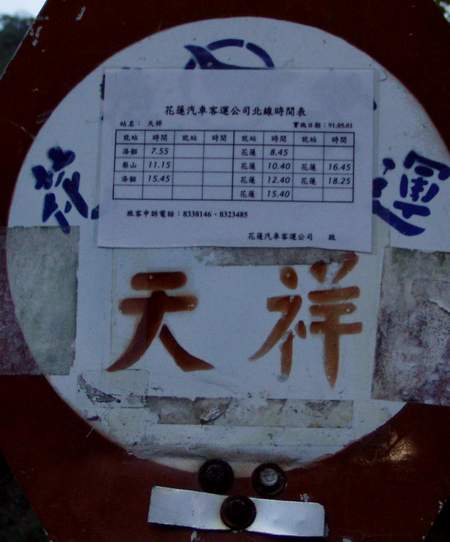 花蓮汽車客運公司北線時間表
站名: 天祥 實施日期:91.05.01
時間 時間 時間 時間
洛韶 7.55 花蓮 8.45
梨山 11.15 花蓮 10.40 花蓮 16.45
洛韶 15.45 花蓮 12.40 花蓮 18.25
花蓮 15.40
旅客申訴電話:8338146、8323485
花蓮汽車客運公司 啟
花 運
天祥